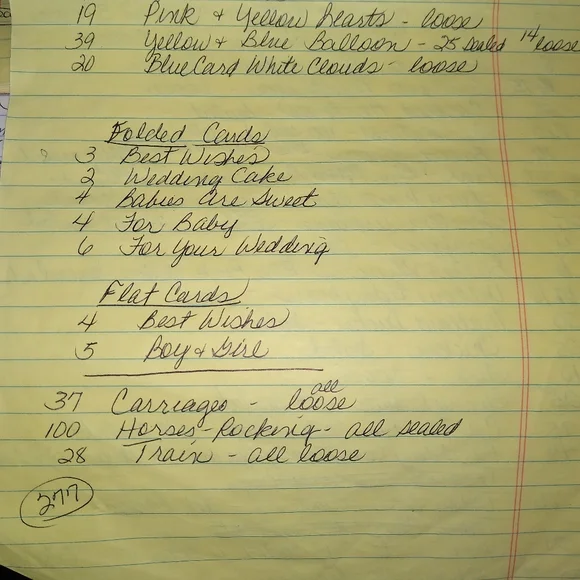 19 Pink & Yellow Hearts - loose
39 Yellow & Blue Balloon - 25 sealed 14 loose
20 Blue Card White Clouds - loose
Folded Cards
3 Best Wishes
2 Wedding Cake
4 Babies are Sweet
4 For Baby
6 For Your Wedding
Flat Cards
4 Best Wishes
5 Boy & Girl
37 Carriages - all loose
100 Horses - Rocking - all sealed
28 Train - all loose
277